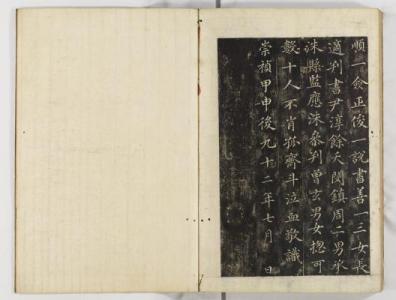 順一僉正俊一說書善一三女長
適判書尹淳餘夭閔鎭周二男承
洙縣監應洙叅判曾玄男女揔可
數十人不肖孤齊斗泣血敬識
崇禎甲申後九十二年七月 日